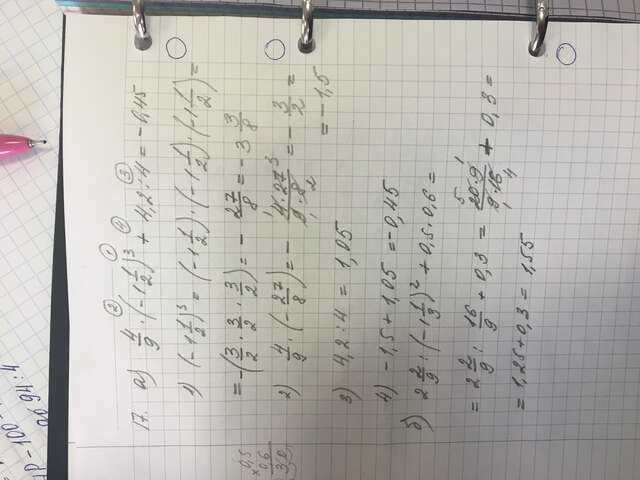 ЧР-100-
2094:4
② ① ④ ③
17. а) 4/9 · (-1 1/2)³ + 4,2 : 4 = -0,45
1) (-1 1/2)³ = (-1 1/2) · (-1 1/2) · (-1 1/2) =
= -(3/2 · 3/2 · 3/2) = - 27/8 = -3 3/8
0,5
× 0,6
3,0
2) 4/9 · (-27/8) = - 4 · 27/9 · 8 = - 3/2 =
= -1,5
3) 4,2 : 4 = 1,05
4) -1,5 + 1,05 = -0,45
б) 2 2/9 : (-1 1/3)² + 0,5 · 0,6 =
= 2 2/9 : 16/9 + 0,3 = 20 · 9/9 · 16 + 0,3 =
= 1,25 + 0,3 = 1,55